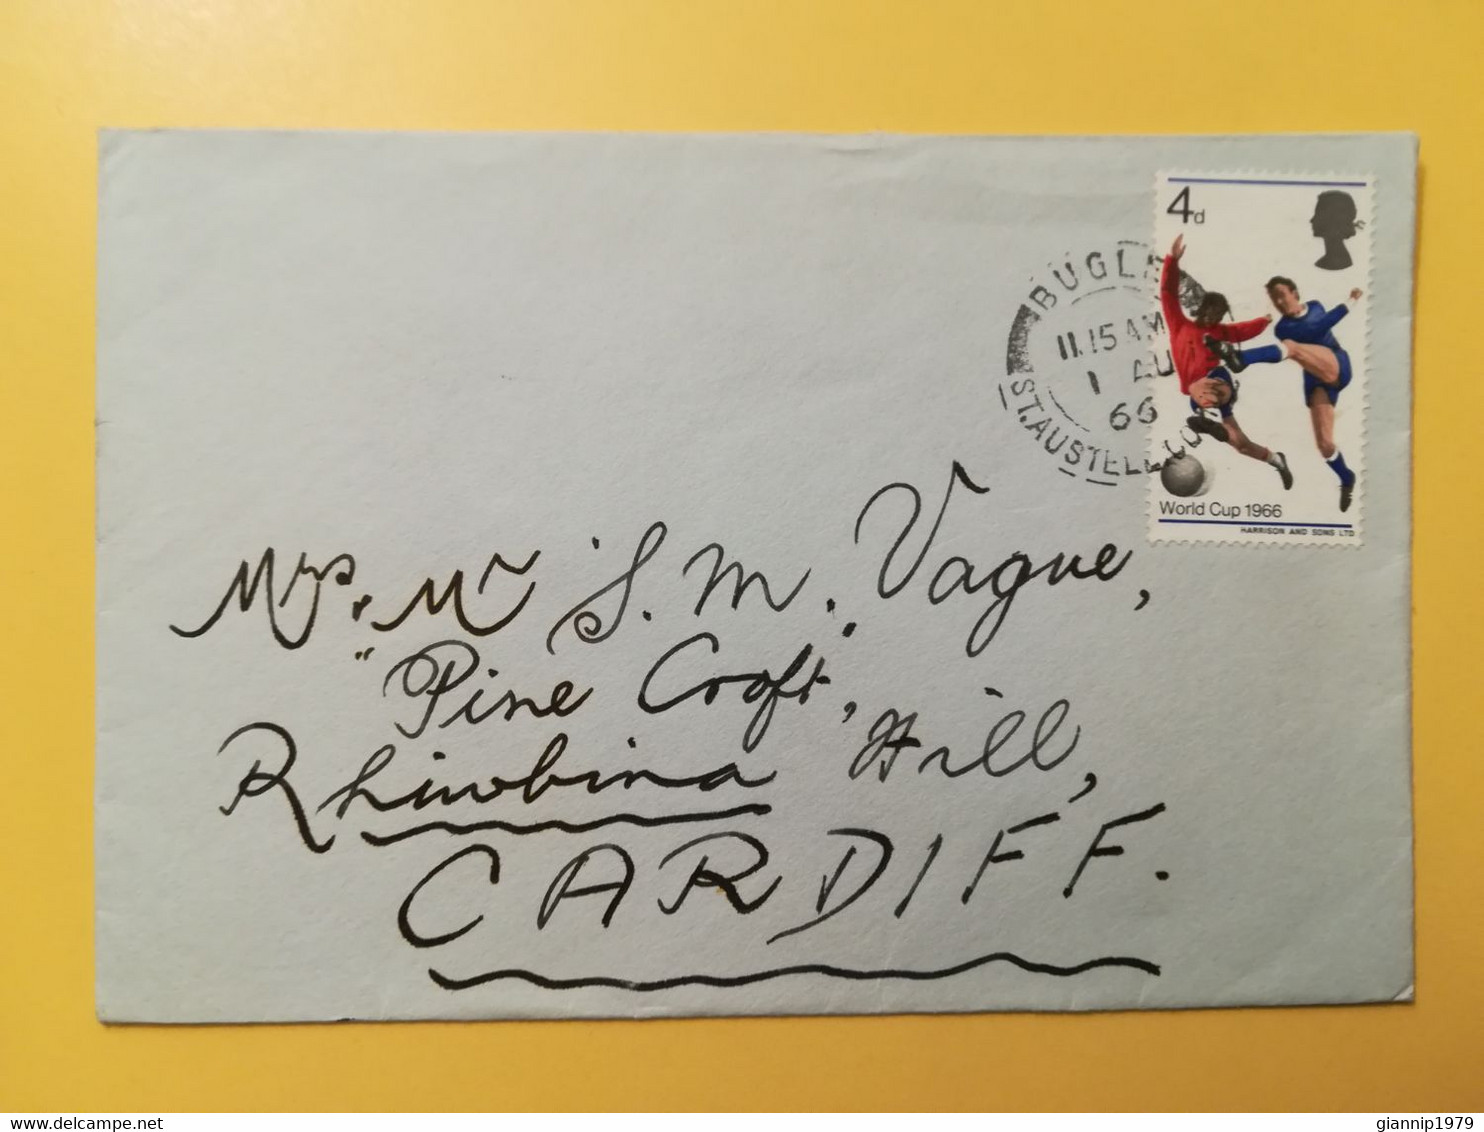 4d
BUGLE
11.15 AM
1 AU
66
ST. AUSTELL. CO
World Cup 1966
HARRISON AND SONS LTD
Mrs. Mr S. M. Vague,
"Pine Croft,
Rhiwbina Hill,
CARDIFF.
www.delcampe.net
giannip1979